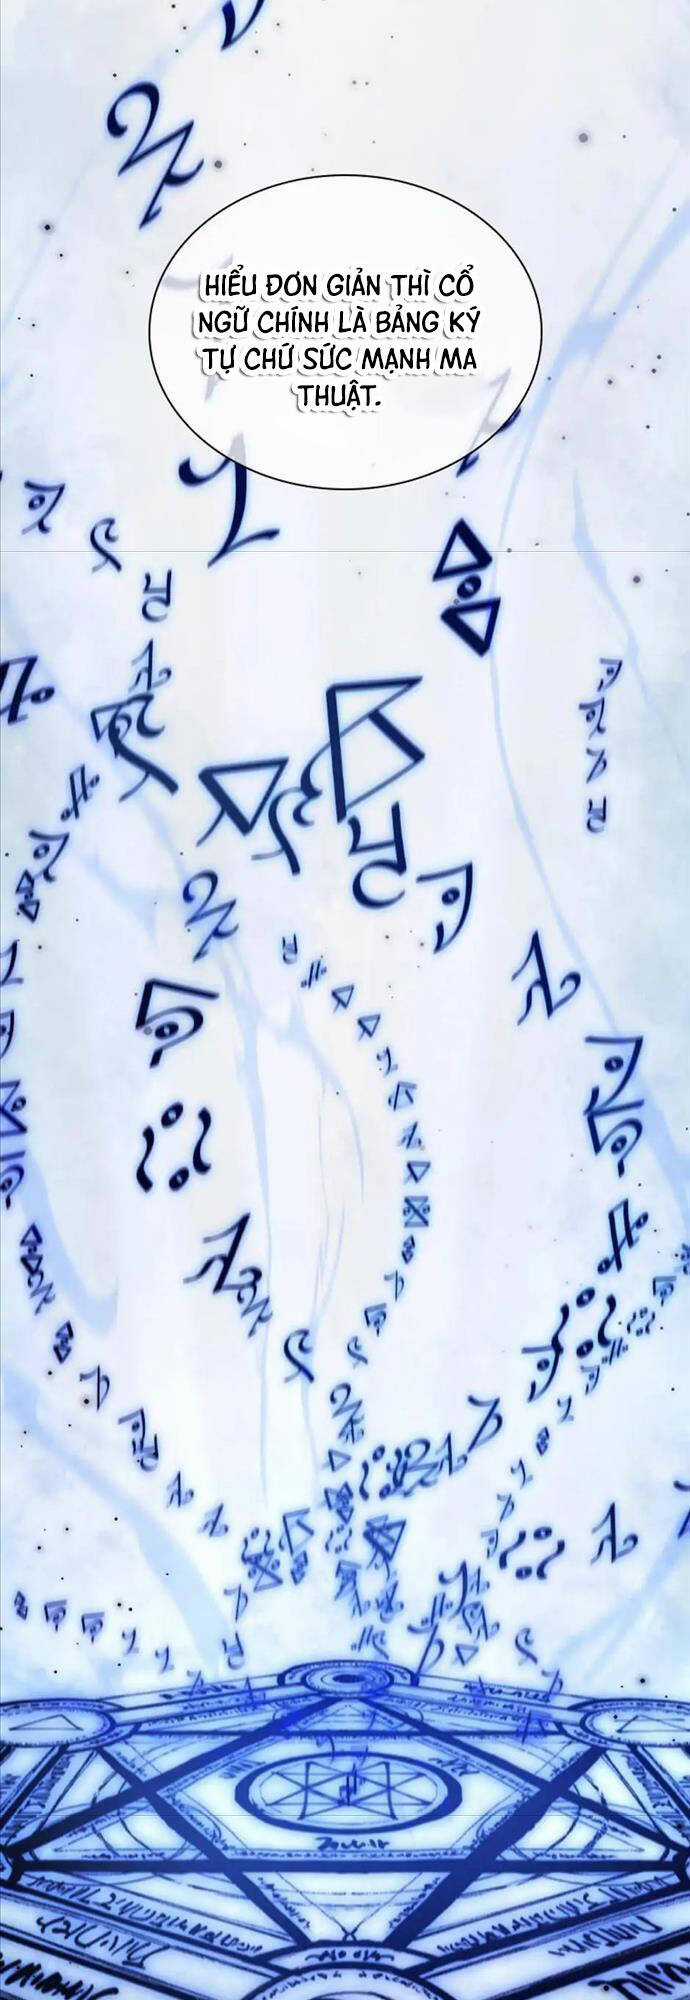 HIỂU ĐƠN GIẢN THÌ CỔ
NGỮ CHÍNH LÀ BẢNG KÝ
TỰ CHỨ SỨC MẠNH MA
THUẬT.